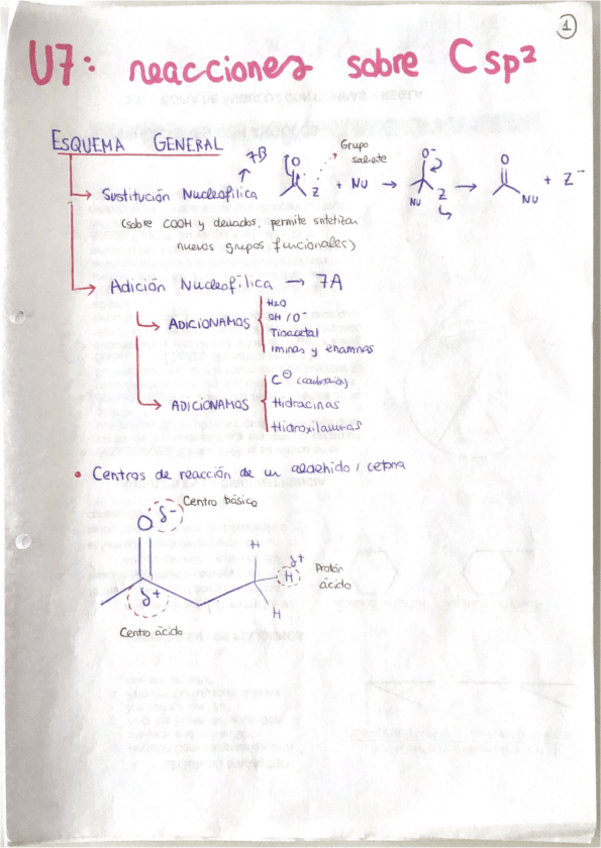 1
U7: reacciones sobre C sp²
ESQUEMA GENERAL
Sustitución Nucleofílica
7B
O
Z
+ NU →
Grupo
saliente
O⁻
NU Z
→
O
NU
+ Z⁻
(sobre COOH y derivados, permite sintetizar
nuevos grupos funcionales)
Adición Nucleofílica → 7A
ADICIONAMOS
H2O
OH / O⁻
Tioacetal
iminas y enaminas
ADICIONAMOS
C⊖
Hidracinas
Hidroxilaminas
• Centros de reacción de un aldehido / cetona
Centro básico
O δ-
δ+
Centro ácido
H
δ+
H
H
Protón
ácido